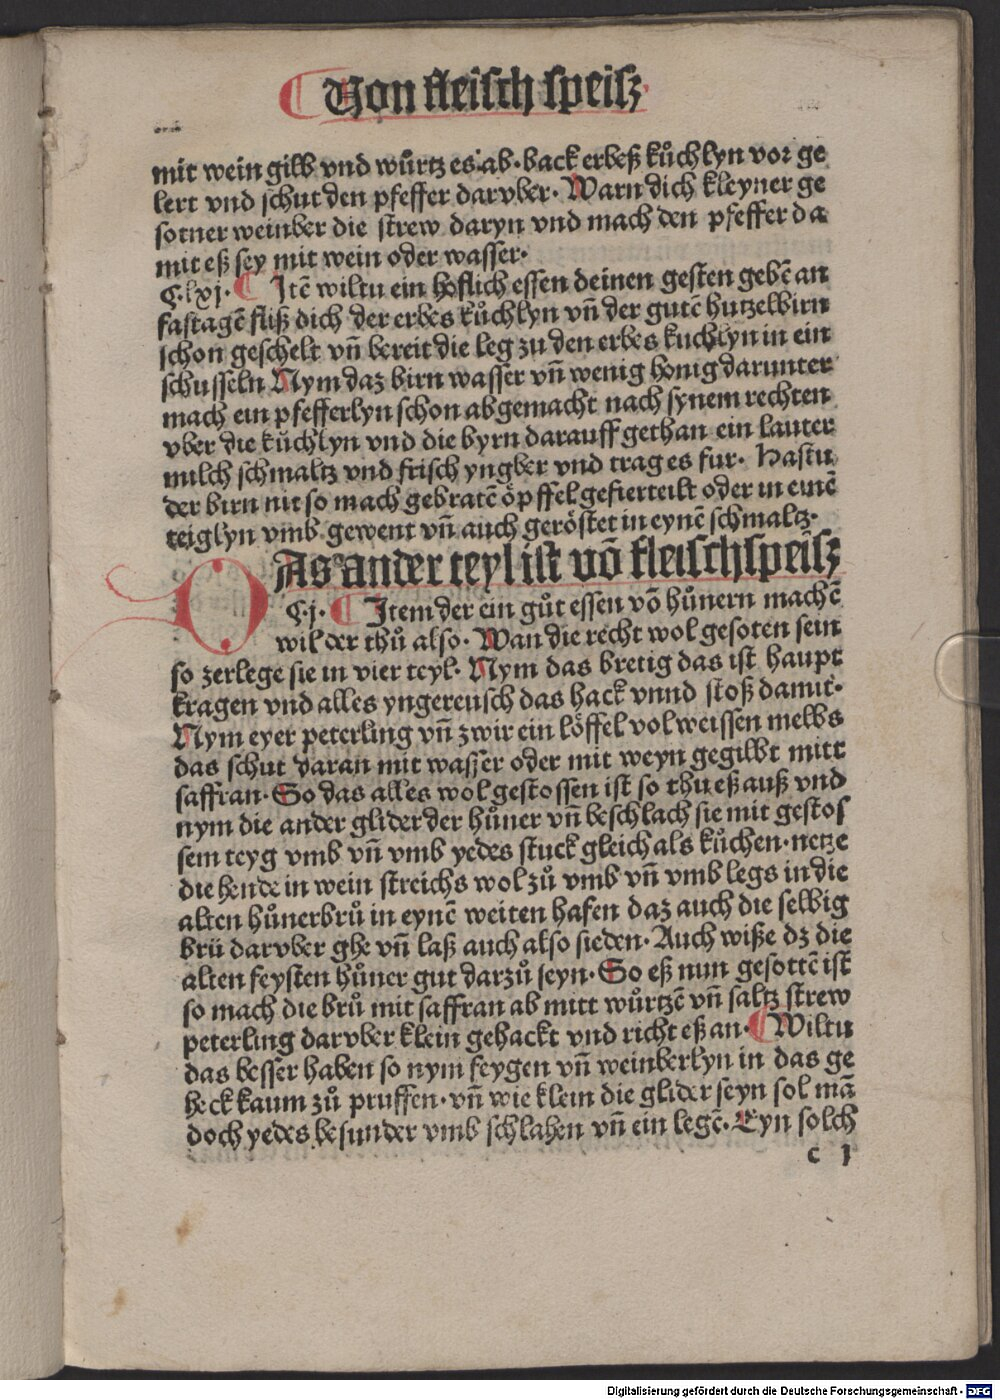 Von fleisch speisz
mit wein gilb vnd wůrtz es ab. back erbeß kůchlyn vor ge
lert vnd schut den pfeffer darvber. Warn dich kleyner ge
sotner weinber die strew daryn vnd mach den pfeffer da
mit eß sey mit wein oder wasser.
C.lxj. Itē wiltu ein hoflich essen deinen gesten gebē an
fastagē fliß dich der erbes kůchlyn vn̄ der gutē hutzelbirn
schon geschelt vn̄ bereit die leg zu den erbes kuchlyn in ein
schusseln Nym daz birn wasser vn̄ wenig honig darunter
mach ein pfefferlyn schon abgemacht nach synem rechten
vber die kůchlyn vnd die byrn darauff gethan ein lauter
milch schmaltz vnd frisch yngber vnd trag es fur. Hastu
der birn nit so mach gebratē öpffel gefierteilt oder in einē
teiglyn vmb gewent vn̄ auch geröstet in eynē schmaltz.
DAs ander teyl ist vō fleischspeisz
C.j. Item der ein gůt essen vō hůnern machē
wil der thů also. Wan die recht wol gesoten sein
so zerlege sie in vier teyl. Nym das bretig das ist haupt
kragen vnd alles yngereusch das hack vnnd stoß damit.
Nym eyer peterling vn̄ zwir ein löffel vol weissen melbs
das schut daran mit wasser oder mit weyn gegilbt mitt
saffran. So das alles wol gestossen ist so thu eß auß vnd
nym die ander glider der hůner vn̄ beschlach sie mit gestos
sem teyg vmb vn̄ vmb yedes stuck gleich als kůchen. netze
die hende in wein streichs wol zů vmb vn̄ vmb legs in die
alten hůnerbrů in eynē weiten hafen daz auch die selbig
brü darvber ghe vn̄ laß auch also sieden. Auch wiße dz die
alten feysten hůner gut darzů seyn. So eß nun gesottē ist
so mach die brů mit saffran ab mitt wůrtzē vn̄ saltz strew
peterling darvber klein gehackt vnd richt eß an. Wiltu
das besser haben so nym feygen vn̄ weinberlyn in das ge
heck kaum zů pruffen. vn̄ wie klein die glider seyn sol mā
doch yedes besunder vmb schlahen vn̄ ein legē. Eyn solch
c j
Digitalisierung gefördert durch die Deutsche Forschungsgemeinschaft - DFG